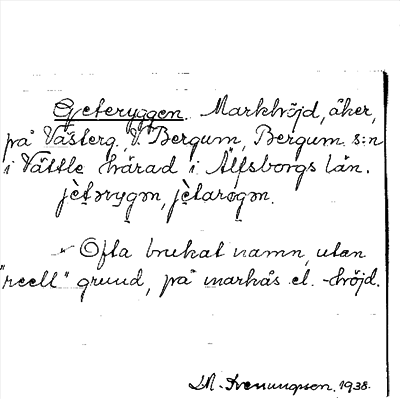 Gjeteryggen. Markhöjd, åker,
på Västerg., V. Bergum, Bergum s:n
i Vättle härad i Älfsborgs län.
jètərygən, jètarəgən.
Ofta brukat namn, utan
"reell" grund, på markås el. -höjd.
1938.